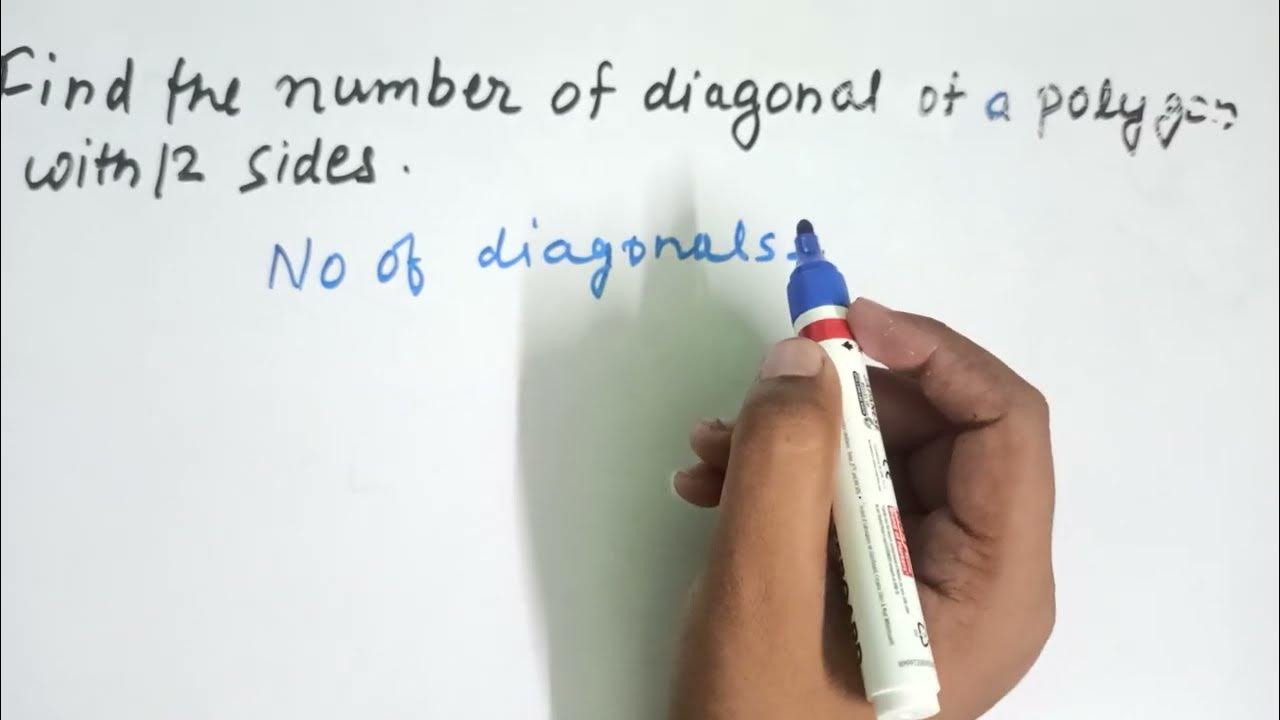 Find the number of diagonal of a polygon
with 12 sides.
No of diagonals